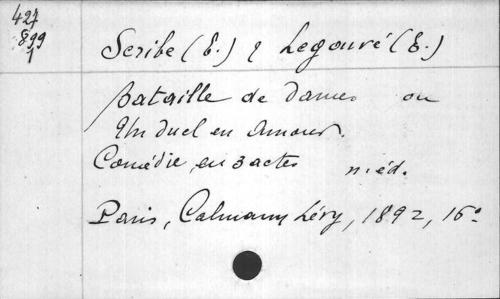 427
899
1
Scribe (E.) & Legouvé (E.)
Bataille de Dames ou
Un duel en Amour.
Comédie en 3 actes n. éd.
Paris, Calmann Lévy, 1892, 16º